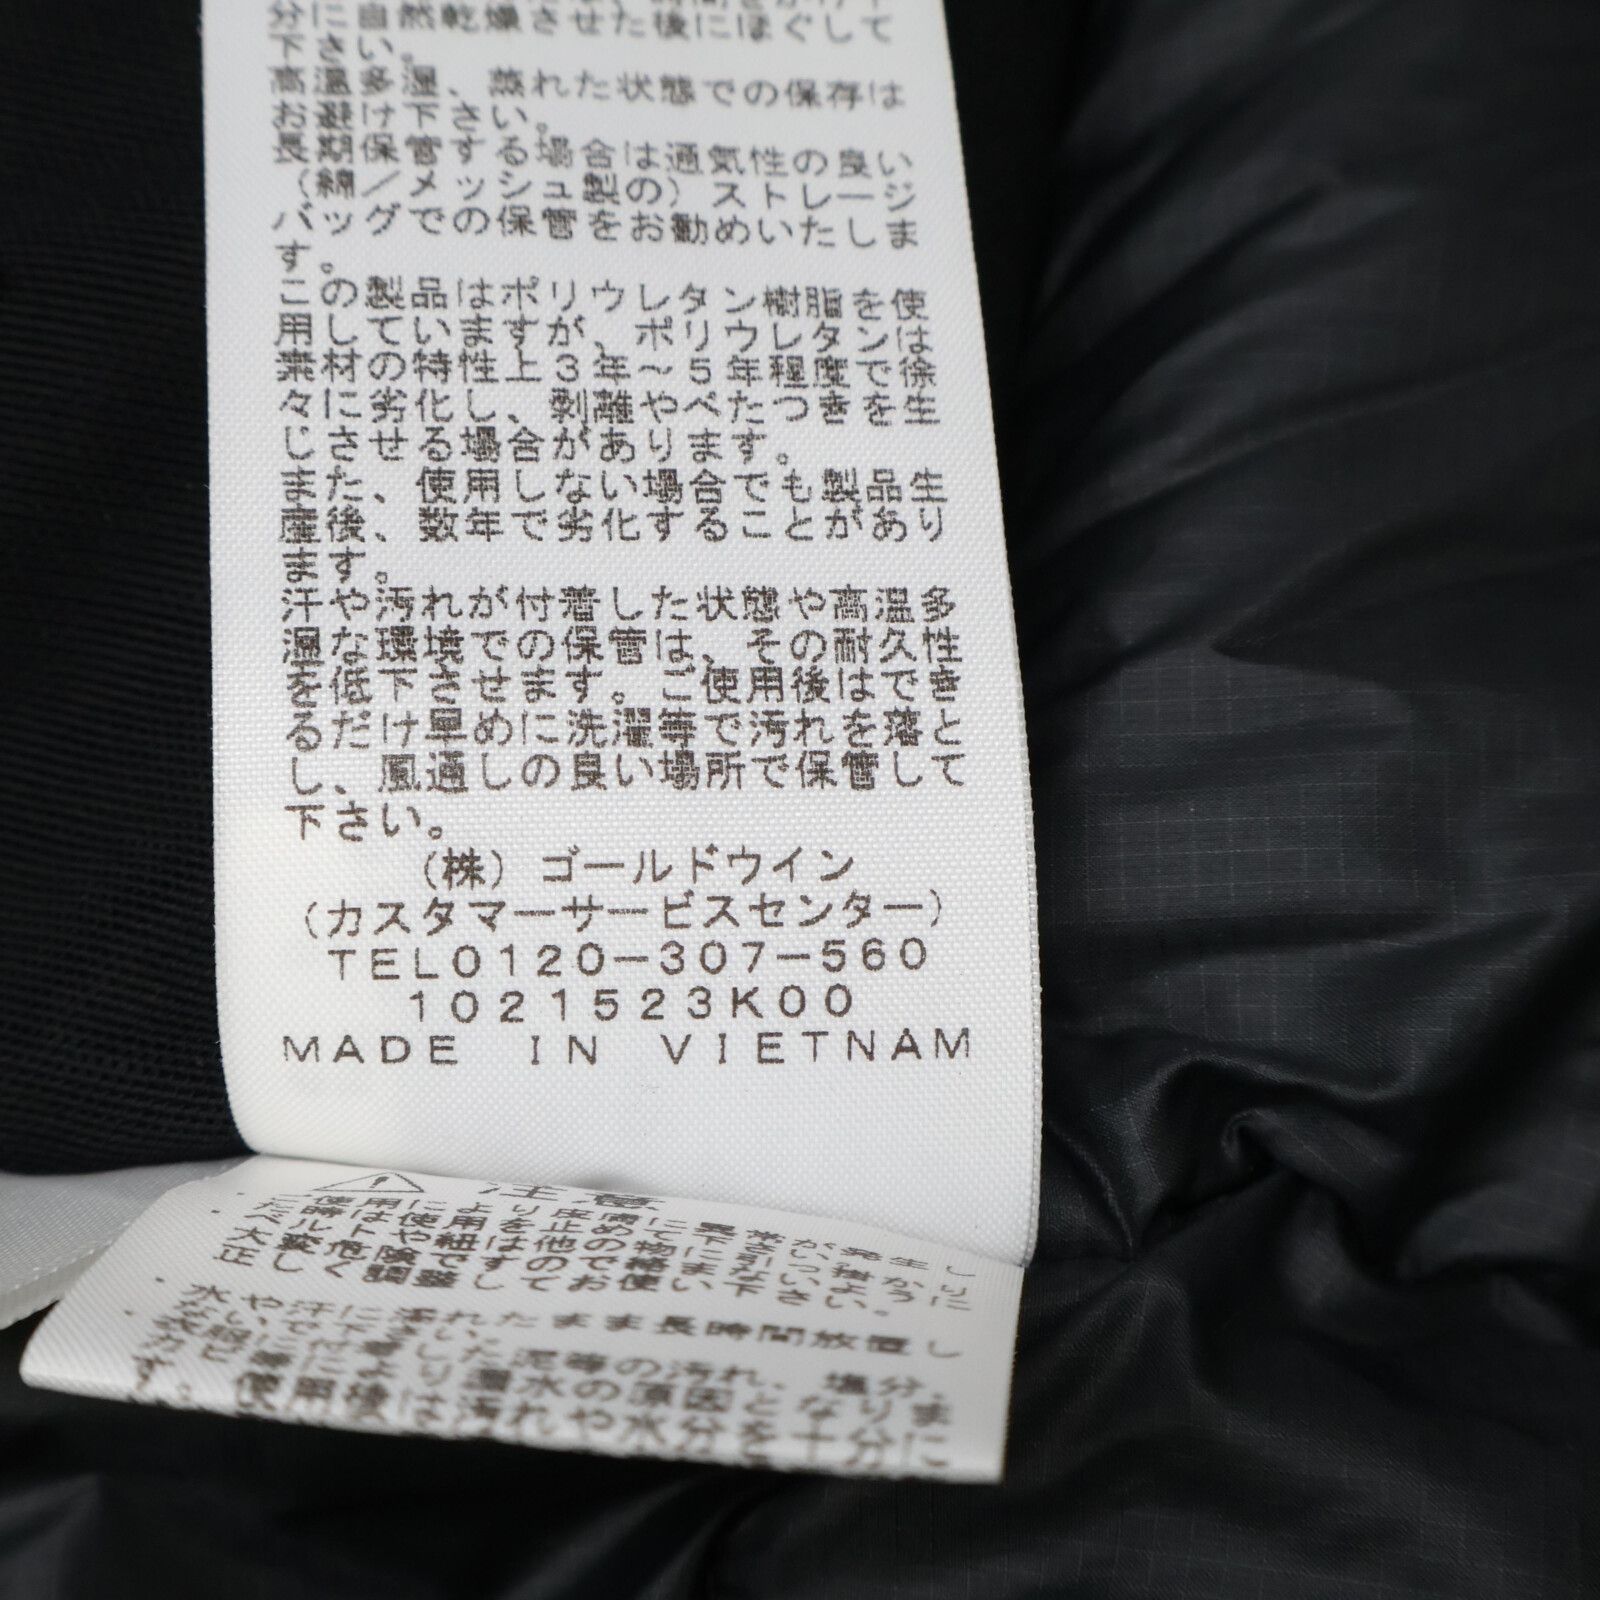 分に自然乾燥させた後にほぐして
下さい。
高温多湿、蒸れた状態での保存は
お避け下さい。
長期保管する場合は通気性の良い
（綿／メッシュ製の）ストレージ
バッグでの保管をお勧めいたしま
す。
この製品はポリウレタン樹脂を使
用していますが、ポリウレタンは
素材の特性上３年～５年程度で徐
々に劣化し、剥離やべたつきを生
じさせる場合があります。
また、使用しない場合でも製品生
産後、数年で劣化することがあり
ます。
汗や汚れが付着した状態や高温多
湿な環境での保管は、その耐久性
を低下させます。ご使用後はでき
るだけ早めに洗濯等で汚れを落と
し、風通しの良い場所で保管して
下さい。
（株）ゴールドウイン
（カスタマーサービスセンター）
TEL0120-307-560
1021523K00
MADE IN VIETNAM
注意
正しく調整してお使い下さい。
水や汗に濡れたまま長時間放置し
ないで下さい。
衣服に付着した泥等の汚れ、塩分、
カビ等により漏水の原因となりま
す。使用後は汚れや水分を十分に